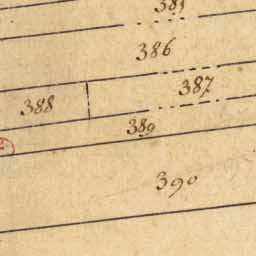 385
386
387
388
389
390